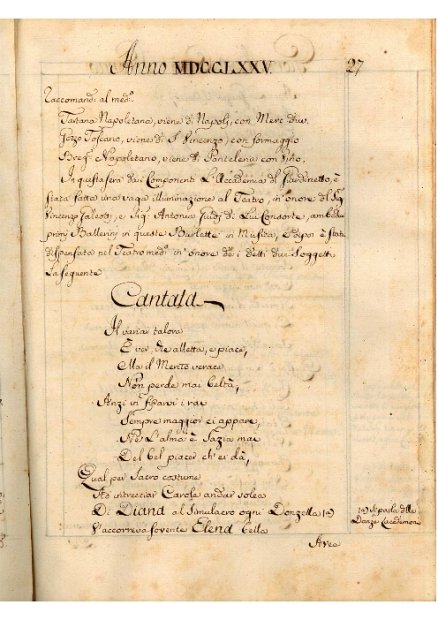 Anno MDCCLXXV.
27
Raccomand: al medº:
Tartana Napoletana, viene di Napoli, con Merc: div:
Gozzo Toscano, viene di S. Vincenzo, con formaggio
Brigº Napoletano, viene di Pantelena con Vino.
In questa sera dai Componenti L'Accademia del Giardinetto, è
stata fatta una vaga illuminazione al Teatro, in onore del Sigʳ
Vincenzo Galeotti, e Sigʳ Antonia Guidi di Lui Consorte, ambidui
primi Ballerini in queste Burlette in Musica, e dopoi è stata
dispensata nel Teatro medº in onore de i detti due Soggetti
La seguente
Cantata
Il variar talora
È ver, che alletta, e piace,
Ma il Merito verace
Non perde mai beltà,
Anzi in fissarvi i rai
Sempre maggior ci appare,
Nè L'alma è Sazia mai
Del bel piacer ch'ei dà,
Qual per Sacro costume
Ad intrecciar Carole andar solea
Di Diana al Simulacro ogni Donzella (a)
V'accorreva sovente Elena bella
(a) Si parla delle
Danze Lacedemoni
Avea